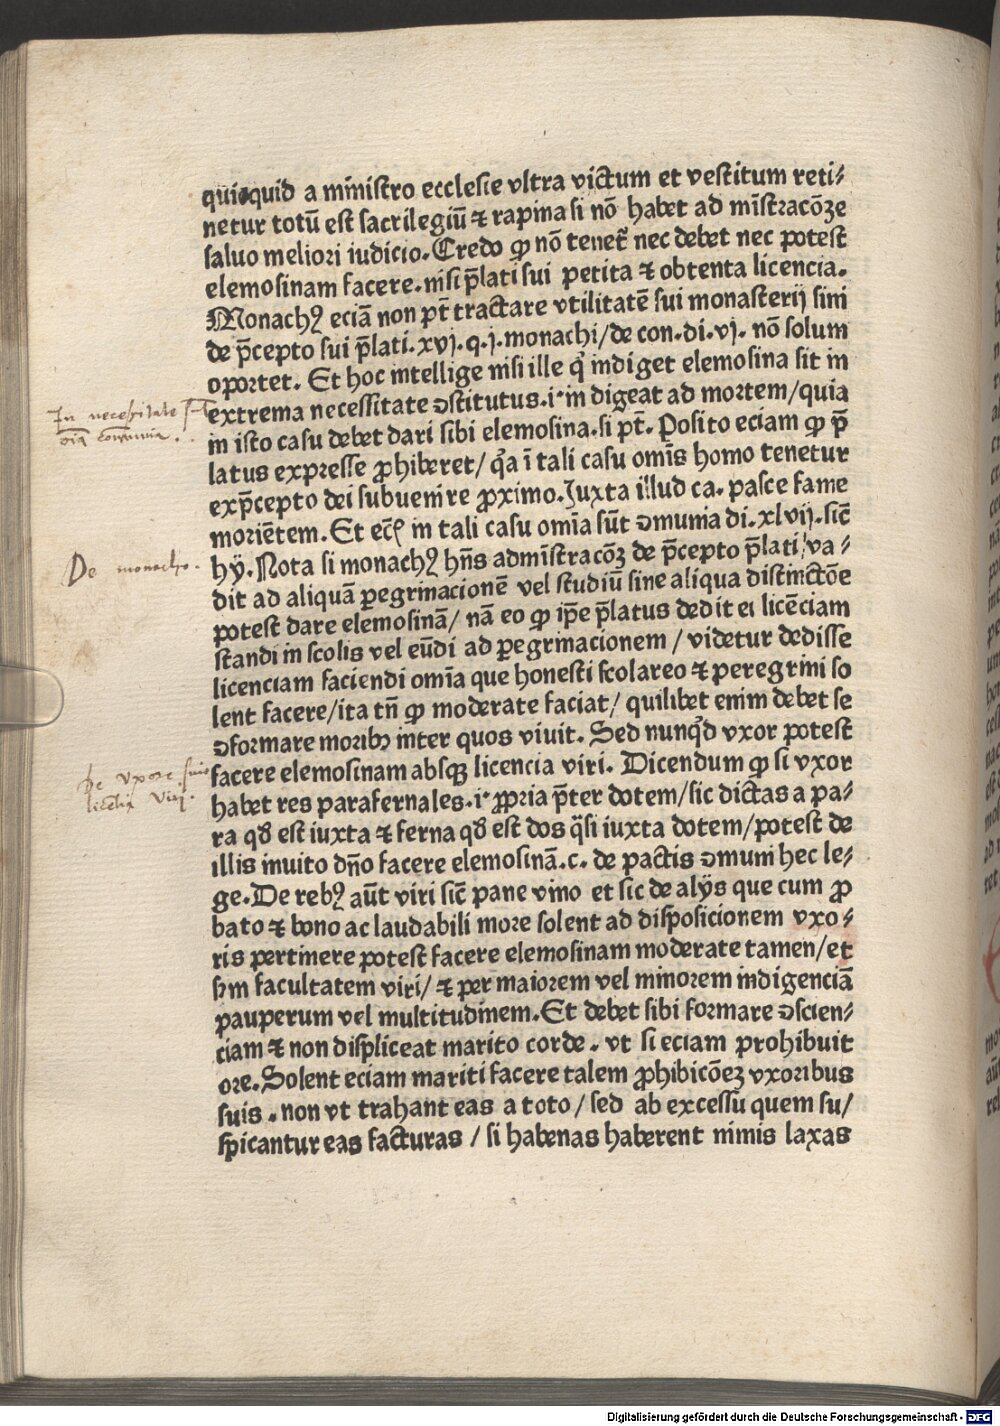 quicquid a ministro ecclesie vltra victum et vestitum reti⸗
netur totū est sacrilegiū ⁊ rapina si nō habet ad mīstracōꝫe
saluo meliori iudicio. Credo ꝙ nō tenet᷑ nec debet nec potest
elemosinam facere. nisi p̄lati sui petita ⁊ obtenta licencia.
Monachꝰ eciā non pt̄ tractare vtilitatē sui monasterij sini
de p̄cepto sui p̄lati. xvj. q. j. monachi/ de con. di. vj. nō solum
oportet. Et hoc intellige nisi ille qͥ indiget elemosina sit in
extrema necessitate ꝯstitutus. i· in digeat ad mortem/ quia
in isto casu debet dari sibi elemosina. si pt̄. Posito eciam ꝙ p̄
latus expresse ꝓhiberet/ qͥa ī tali casu omīs homo tenetur
exp̄cepto dei subuenire ꝓximo. Juxta illud ca. pasce fame
moriētem. Et ec̄ꝭ in tali casu omīa sūt ꝯmunia di. xlvij. sic̄
hÿ. Nota si monachꝰ hn̄s admīstracōꝫ de p̄cepto p̄lati va⸗
dit ad aliquā ꝑegrinacionē vel studiū sine aliqua distinctōe
potest dare elemosinā/ nā eo ꝙ ip̄e p̄latus dedit ei licēciam
standi in scolis vel eūdi ad ꝑegrinacionem / videtur dedisse
licenciam faciendi omīa que honesti scolareo ⁊ peregrini so
lent facere/ ita tn̄ ꝙ moderate faciat/ quilibet enim debet se
ꝯformare moribꝫ inter quos viuit. Sed nunqͥd vxor potest
facere elemosinam absqꝫ licencia viri. Dicendum ꝙ si vxor
habet res parafernales. i· ꝓpria p̄ter dotem/ sic dictas a pa⸗
ra qđ est iuxta ⁊ ferna qđ est dos q̄si iuxta dotem/ potest de
illis inuito dn̄o facere elemosinā. c. de pactis ꝯmuni hec le⸗
ge. De rebꝰ aūt viri sic̄ pane vino et sic de alÿs que cum ꝓ
bato ⁊ bono ac laudabili more solent ad disposicionem vxo⸗
ris pertinere potest facere elemosinam moderate tamen/ et
scd̄m facultatem viri/ ⁊ per maiorem vel minorem indigenciā
pauperum vel multitudinem. Et debet sibi formare ꝯscien⸗
ciam ⁊ non displiceat marito corde . vt si eciam prohibuit
ore. Solent eciam mariti facere talem ꝓhibicōeꝫ vxoribus
suis . non vt trahant eas a toto / sed ab excessu quem su/
spicantur eas facturas / si habenas haberent nimis laxas
In necessitate
oīa comunia.
De monacho.
De vxore sine
licētia viri.
Digitalisierung gefördert durch die Deutsche Forschungsgemeinschaft - DFG